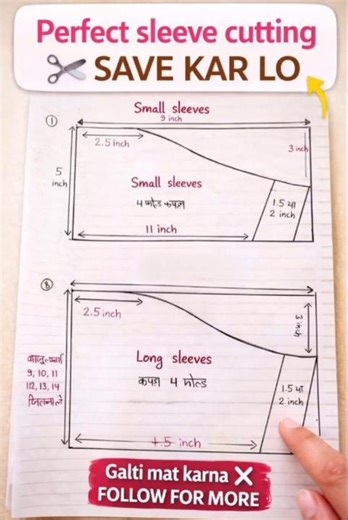 Perfect sleeve cutting
SAVE KAR LO
Small sleeves
①
9 inch
2.5 inch
3 inch
5
inch
Small sleeves
4 फोल्ड कपड़ा
1.5 या
2 inch
11 inch
2.5 inch
3 inch
Long sleeves
कपड़ा 4 फोल्ड
9, 10, 11
12, 13, 14
1.5 या
2 inch
5 inch
Galti mat karna ❌
FOLLOW FOR MORE